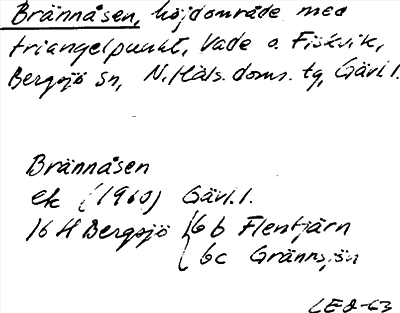 Brännåsen, höjdområde med
triangelpunkt, Vade o. Fiskvik,
Bergsjö sn, N. Häls. doms. tg, Gävl. l.
Brännåsen
ek (1960) Gävl. l.
16 H Bergsjö { 6 b Flentjärn
6c Grännsjön
LEJ-63